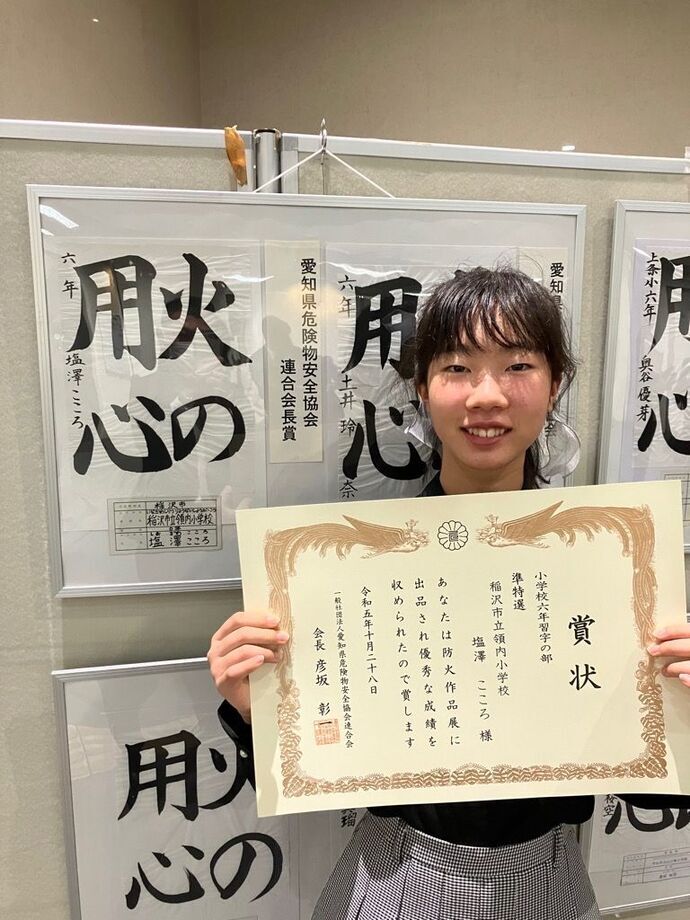 賞状
小学校六年習字の部
準特選
稲沢市立領内小学校
塩澤 こころ 様
あなたは防火作品展に
出品され優秀な成績を
収められたので賞します
令和五年十月二十八日
一般社団法人愛知県危険物安全協会連合会
会長 彦坂 彰
火の
用心
六年 塩澤こころ
稲沢市
稲沢市立領内小学校
塩澤 こころ
愛知県危険物安全協会
連合会長賞
用
心
六年 土井 玲奈
愛知県
会
上条小六年 奥谷優芽
用
心
火の
用心
瑠
空
心